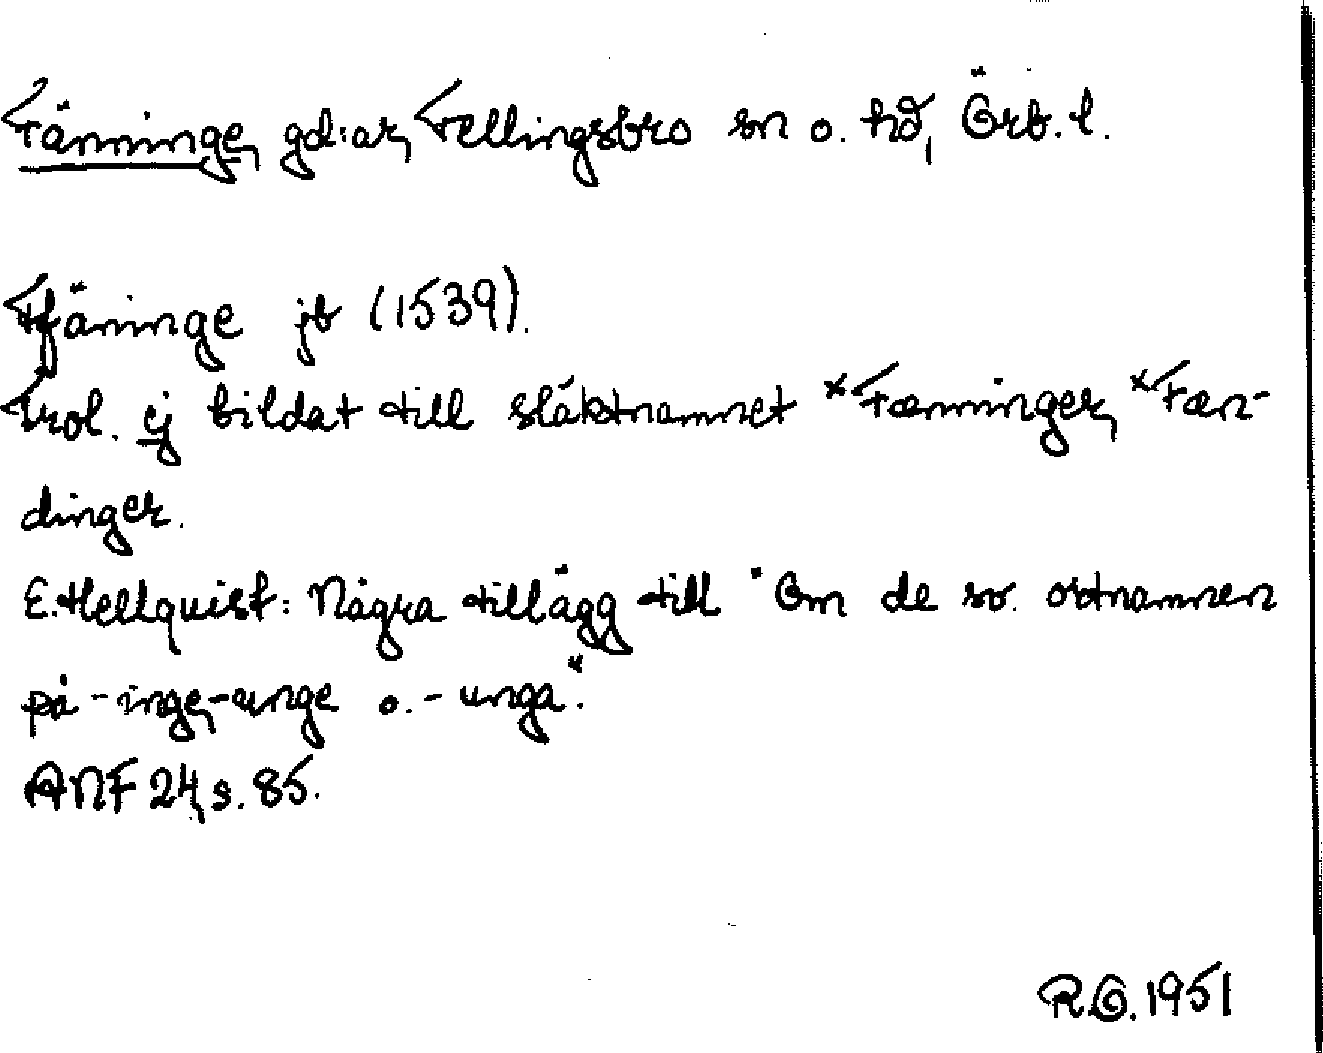 Fänninge, gd:ar, Fellingsbro sn o. hd, Örb. l.
Ffäninge jb (1539).
Trol. ej bildat till släktnamnet *Fænninger, *Fæn-
dinger.
E. Hellquist: Några tillägg till "Om de sv. ortnamnen
på -inge, -unge o. -unga".
ANF 24, s. 85.
R.G. 1951